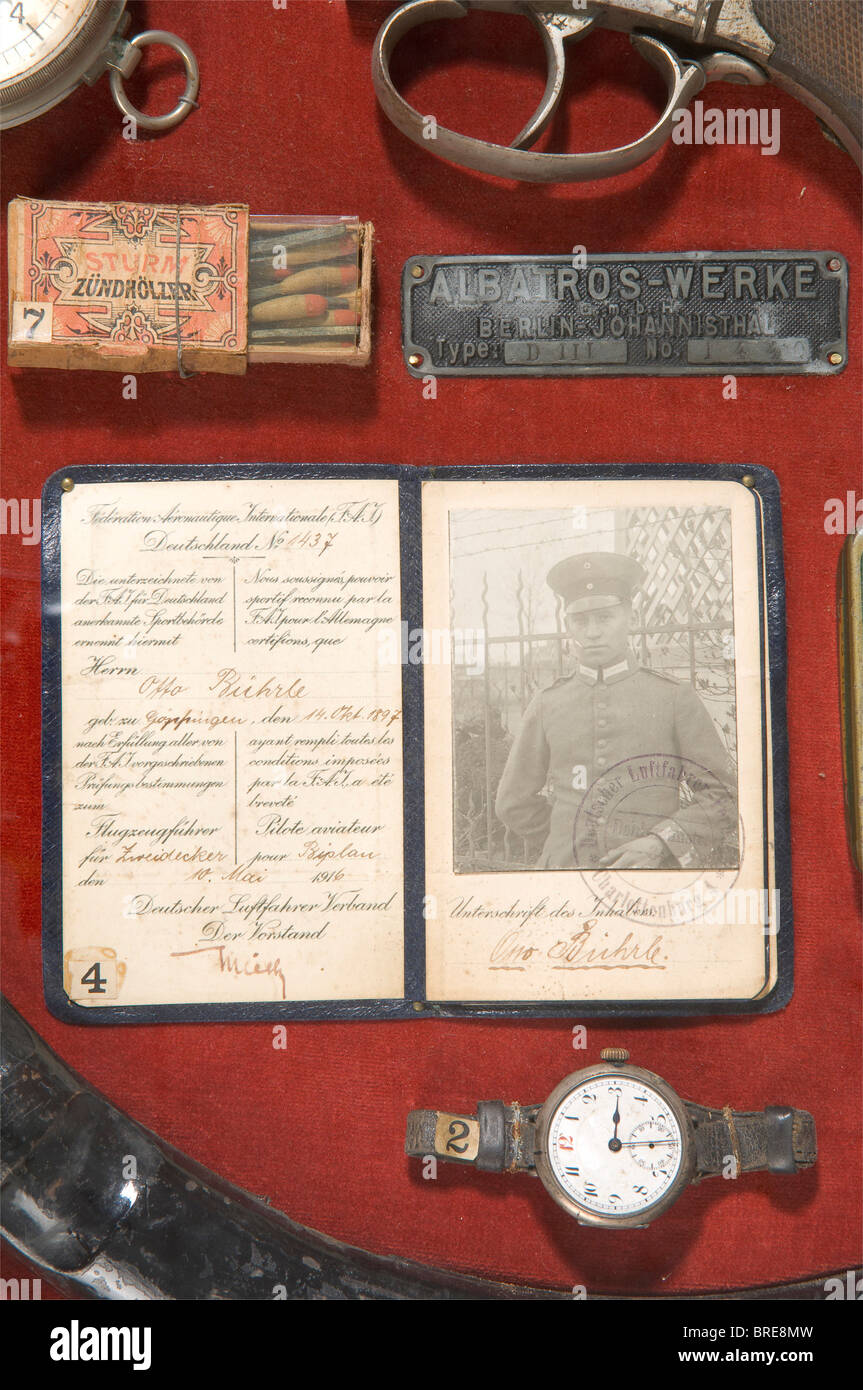 4
STURM
ZÜNDHÖLZER
7
ALBATROS-WERKE
G.m.b.H.
BERLIN-JOHANNISTHAL
Type: D III No. 1
Fédération Aéronautique Internationale (F.A.I)
Deutschland No 1437
Die unterzeichnete von
der F.A.I für Deutschland
anerkannte Sportbehörde
ernennt hiermit
Nous soussignés, pouvoir
sportif reconnu par la
F.A.I pour l'Allemagne
certifions, que
Herrn
Otto Bührle
geb. zu Göppingen, den 14. Okt. 1897
nach Erfüllung aller von
der F.A.I vorgeschriebenen
Prüfungsbestimmungen
zum
ayant rempli toutes les
conditions imposées
par la F.A.I, a été
breveté
Flugzeugführer
für Zweidecker
Pilote aviateur
pour Biplan
den 10. Mai 1916
Deutscher Luftfahrer Verband
Der Vorstand
4
Deutscher Luftfahrer
Charlottenburg
Unterschrift des Inhabers
Otto Bührle.
2
12
3
6
a alamy stock photo
BRE8MW
www.alamy.com